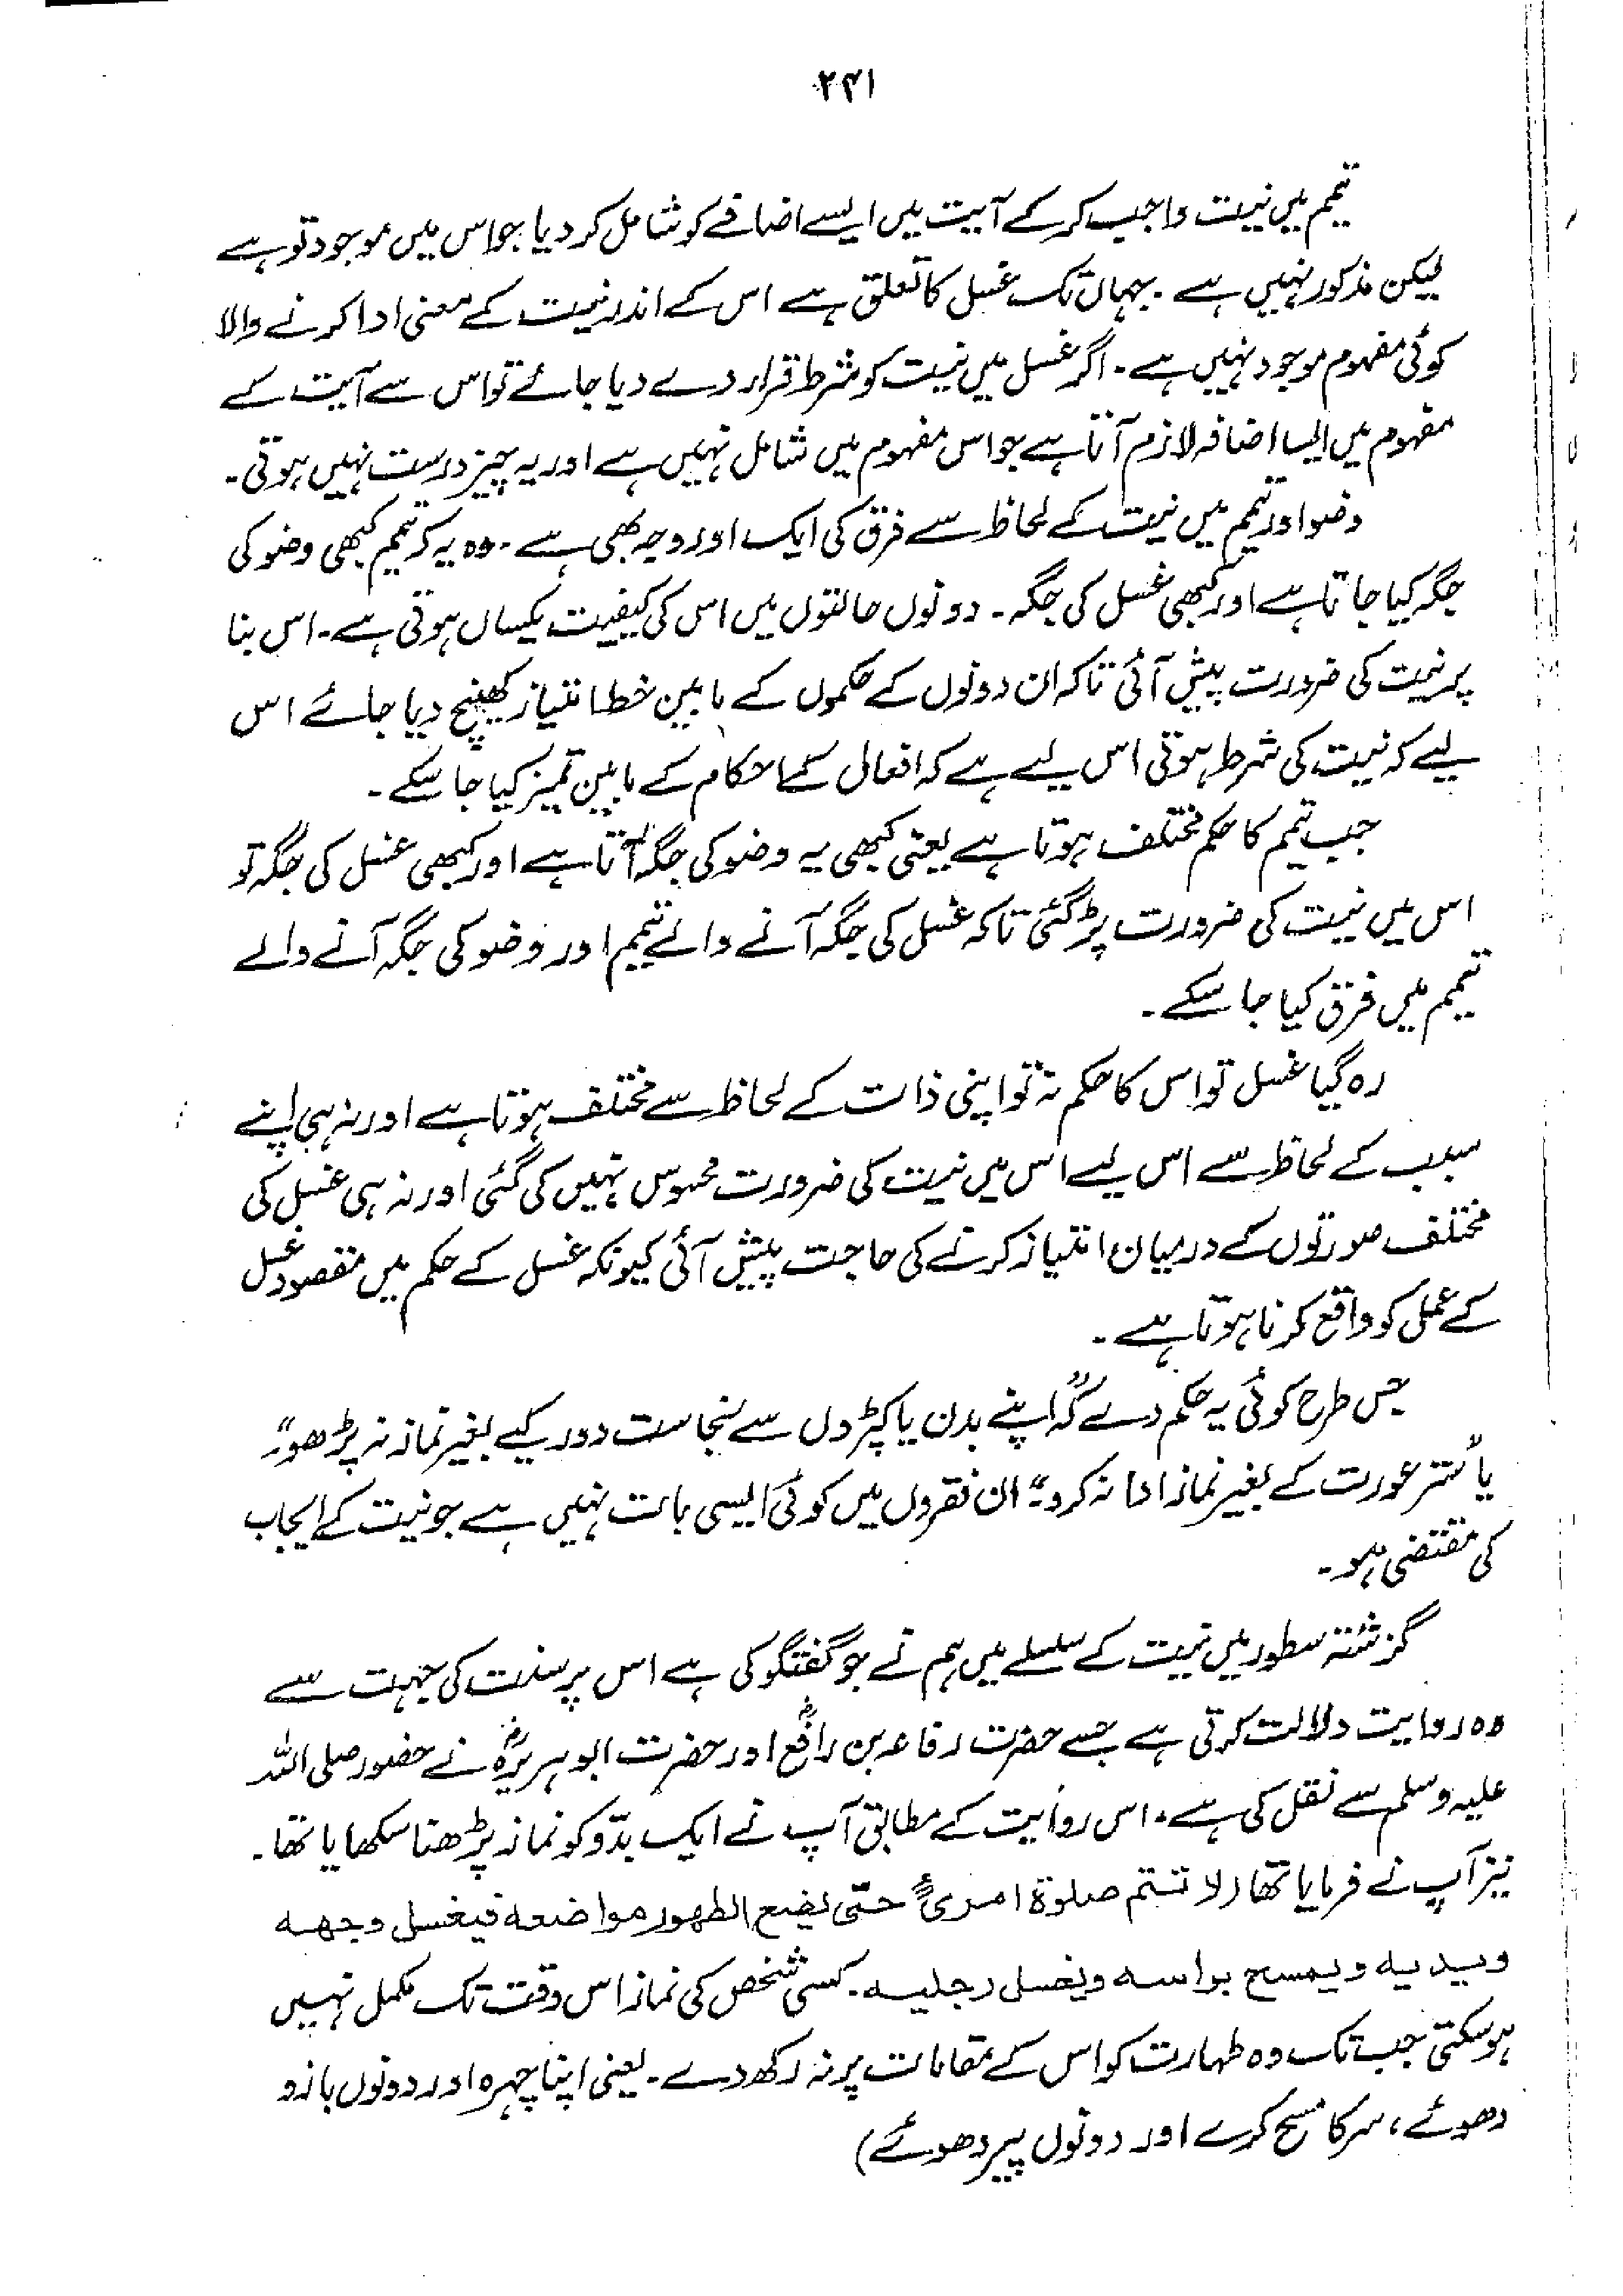 ۲۴۱
تیمم میں نیت واجب کر کے آیت میں ایسے اضافے کو شامل کر دیا جو اس میں موجود تو ہے
لیکن مذکور نہیں ہے۔ جہاں تک غسل کا تعلق ہے اس کے اندر نیت کے معنی ادا کرنے والا
کوئی مفہوم موجود نہیں ہے۔ اگر غسل میں نیت کو شرط قرار دے دیا جائے تو اس سے آیت کے
مفہوم میں ایسا اضافہ لازم آتا ہے جو اس مفہوم میں شامل نہیں ہے اور یہ چیز درست نہیں ہوتی۔
وضو اور تیمم میں نیت کے لحاظ سے فرق کی ایک اور وجہ بھی ہے۔ وہ یہ کہ تیمم کبھی وضو کی
جگہ کیا جاتا ہے اور کبھی غسل کی جگہ۔ دونوں حالتوں میں اس کی کیفیت یکساں ہوتی ہے۔ اس بنا
پر نیت کی ضرورت پیش آئی تاکہ ان دونوں کے حکموں کے مابین خط امتیاز کھینچ دیا جائے اس
لیے کہ نیت کی شرط ہوتی اس لیے ہے کہ افعال کے احکام کے مابین تمیز کیا جا سکے۔
جب تیمم کا حکم مختلف ہوتا ہے یعنی کبھی یہ وضو کی جگہ آتا ہے اور کبھی غسل کی جگہ تو
اس میں نیت کی ضرورت پڑ گئی تاکہ غسل کی جگہ آنے والے تیمم اور وضو کی جگہ آنے والے
تیمم میں فرق کیا جا سکے۔
رہ گیا غسل تو اس کا حکم نہ تو اپنی ذات کے لحاظ سے مختلف ہوتا ہے اور نہ ہی اپنے
سبب کے لحاظ سے اس لیے اس میں نیت کی ضرورت محسوس نہیں کی گئی اور نہ ہی غسل کی
مختلف صورتوں کے درمیان امتیاز کرنے کی حاجت پیش آئی کیونکہ غسل کے حکم میں مقصود غسل
کے عمل کو واقع کرنا ہوتا ہے۔
جس طرح کوئی یہ حکم دے کہ "اپنے بدن یا کپڑوں سے نجاست دور کیے بغیر نماز نہ پڑھو"
یا "ستر عورت کے بغیر نماز ادا نہ کرو"۔ ان فقروں میں کوئی ایسی بات نہیں ہے جو نیت کے ایجاب
کی مقتضی ہو۔
گزشتہ سطور میں نیت کے سلسلے میں ہم نے جو گفتگو کی ہے اس پر سنت کی جہت سے
وہ روایت دلالت کرتی ہے جسے حضرت رفاعہ بن رافعؓ اور حضرت ابوہریرہؓ نے حضور صلی اللہ
علیہ وسلم سے نقل کی ہے۔ اس روایت کے مطابق آپ نے ایک بدّو کو نماز پڑھنا سکھایا تھا۔
نیز آپ نے فرمایا تھا (لا تتم صلوة امریٔ حتّٰی یضع الطهور مواضعه فیغسل وجهه
ویدیه ویمسح براسه ویغسل رجلیه۔ کسی شخص کی نماز اس وقت تک مکمل نہیں
ہو سکتی جب تک وہ طہارت کو اس کے مقامات پر نہ رکھ دے۔ یعنی اپنا چہرہ اور دونوں بازو
دھوئے، سر کا مسح کرے اور دونوں پیر دھوئے)